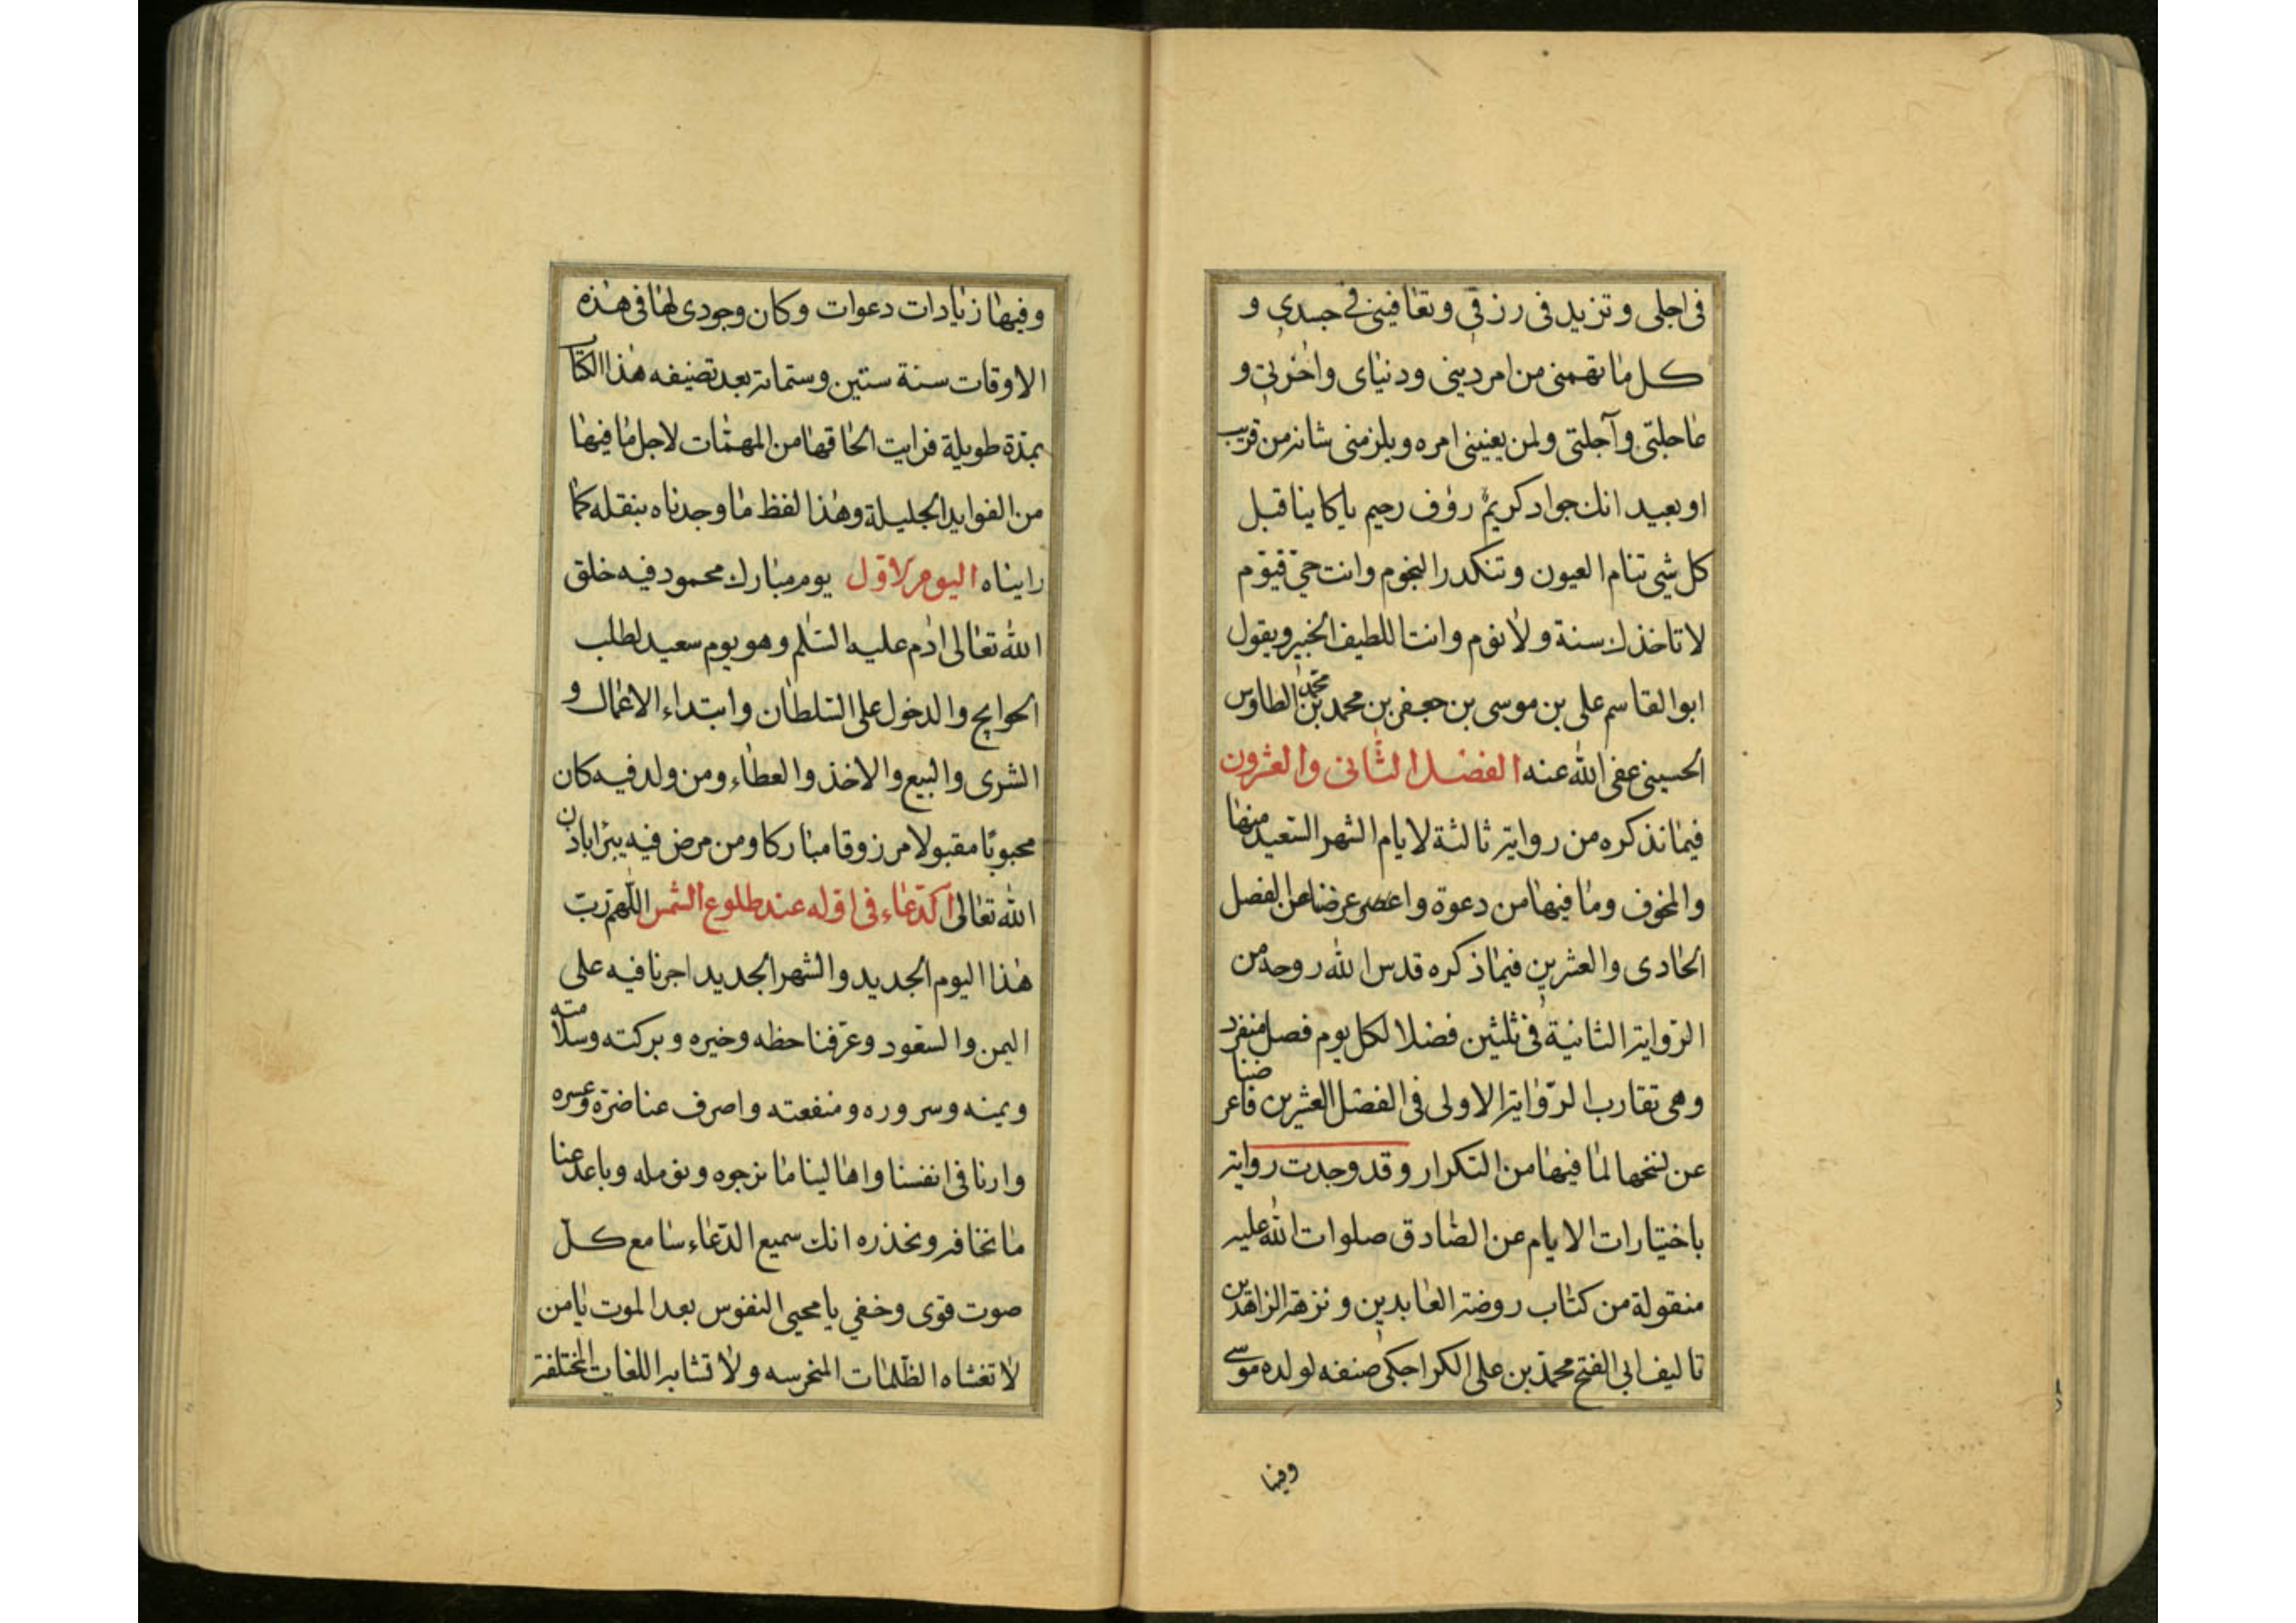 فی اجلی و تزید فی رزقی و تعافینی فی جسدی و
کل ما تهمنی من امر دینی و دنیای و اخرتی و
عاجلتی وآجلتی ولمن یعنینی امره ویلزمنی شانه من قریب
او بعید انک جواد کریم رؤف رحیم یا کاینا قبل
کل شی تنام العیون و تنکدر النجوم وانت حی قیوم
لا تاخذک سنة ولا نوم وانت اللطیف الخبیر ویقول
ابوالقاسم علی بن موسی بن جعفر بن محمد بن محمد الطاوس
الحسینی عفی الله عنه الفصل الثانی والعشرون
فیما نذکره من روایة ثالثة لایام الشهر السعید منها
والمخوف وما فیها من دعوة عرضا عن الفصل
الحادی والعشرین فیما ذکره قدس الله روحه من
الروایة الثانیة فی ثلثین فصلا لکل یوم فصل منفرد
وهی تقارب الروایة الاولی فی الفصل العشرین فاعرضنا
عن نسخها لما فیها من التکرار وقد وجدت روایة
باختیارات الایام عن الصادق صلوات الله علیه
منقولة من کتاب روضة العابدین و نزهة الزاهدین
تالیف ابی الفتح محمد بن علی الکراجکی صنفه لولده موسی
وفیها
وفیها زیادات دعوات وکان وجودی لها فی هذه
الاوقات سنة ستین وستمائة بعد تصنیفه هذا الکتاب
بمدة طویلة فرایت الحاقها من المهمات لاجل ما فیها
من الفواید الجلیلة وهذا لفظ ما وجدناه بنقله کما
رایناه الیوم الاول یوم مبارک محمود فیه خلق
الله تعالی ادم علیه السلم وهو یوم سعید لطلب
الحوایج والدخول علی السلطان وابتداء الاعمال و
الشری والبیع والاخذ والعطاء ومن ولد فیه کان
محبوبا مقبولا مرزوقا مبارکا ومن مرض فیه یبرا باذن
الله تعالی الدعاء فی اوله عند طلوع الشمس اللهم رب
هذا الیوم الجدید والشهر الجدید اجرنا فیه علی
الیمن والسعود وعرفنا حظه وخیره وبرکته وسلامته
ویمنه وسروره ومنفعته واصرف عنا ضره وعسره
وارنا فی انفسنا واهالینا ما نرجوه ونومله وباعد عنا
ما نخافه ونحذره انک سمیع الدعاء سامع کل
صوت قوی وخفی یا محیی النفوس بعد الموت یا من
لا تغشاه الظلمات المخرسه ولا تشابه اللغات المختلفة